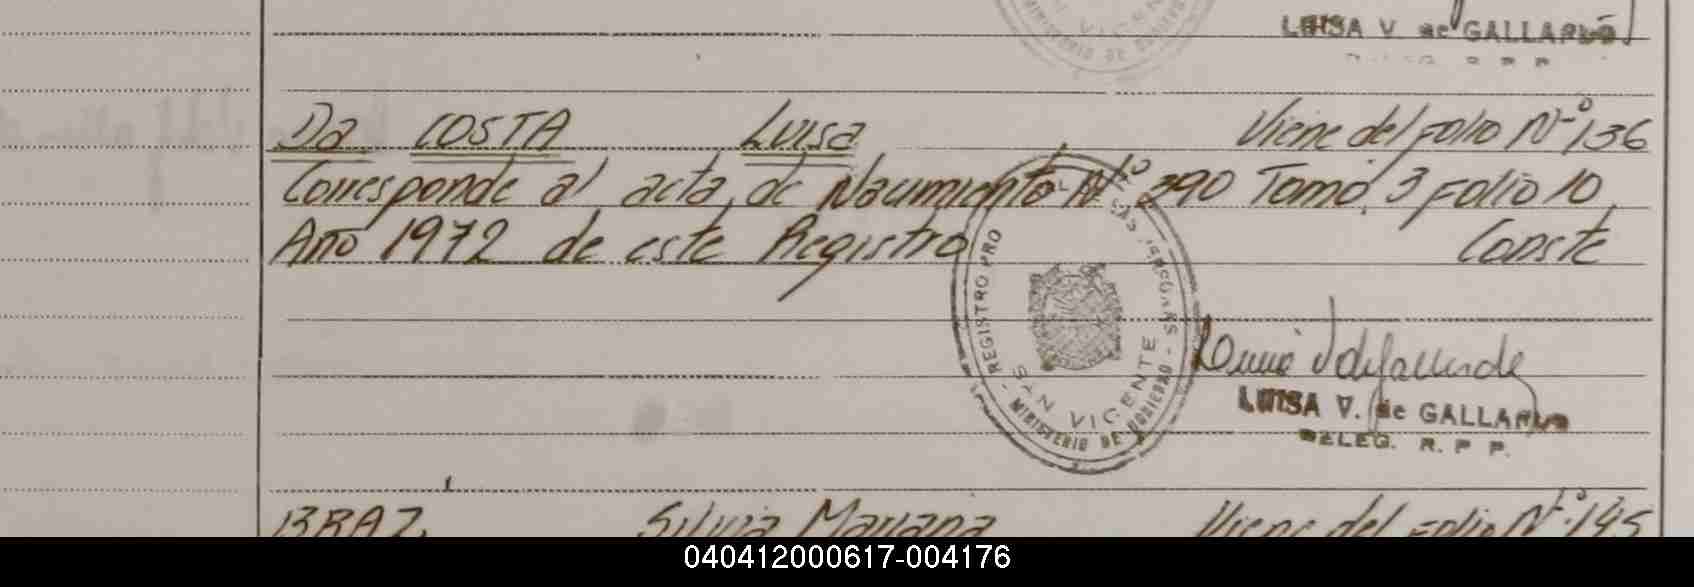 SAN VICENTE
MINISTERIO DE GOBIERNO
LUISA V. de GALLARDO
R. P. P.
Da COSTA Luisa Viene del Folio Nº 136
Corresponde al acta de Nacimiento Nº 390 Tomo 3 Folio 10
Año 1972 de este Registro Conste
REGISTRO PRO
LAS PERSONAS
SAN VICENTE
MINISTERIO DE GOBIERNO
LUISA V. de GALLARDO
DELEG. R. P P.
BRAZ Silvia Mariana Viene del Folio Nº 195
040412000617-004176